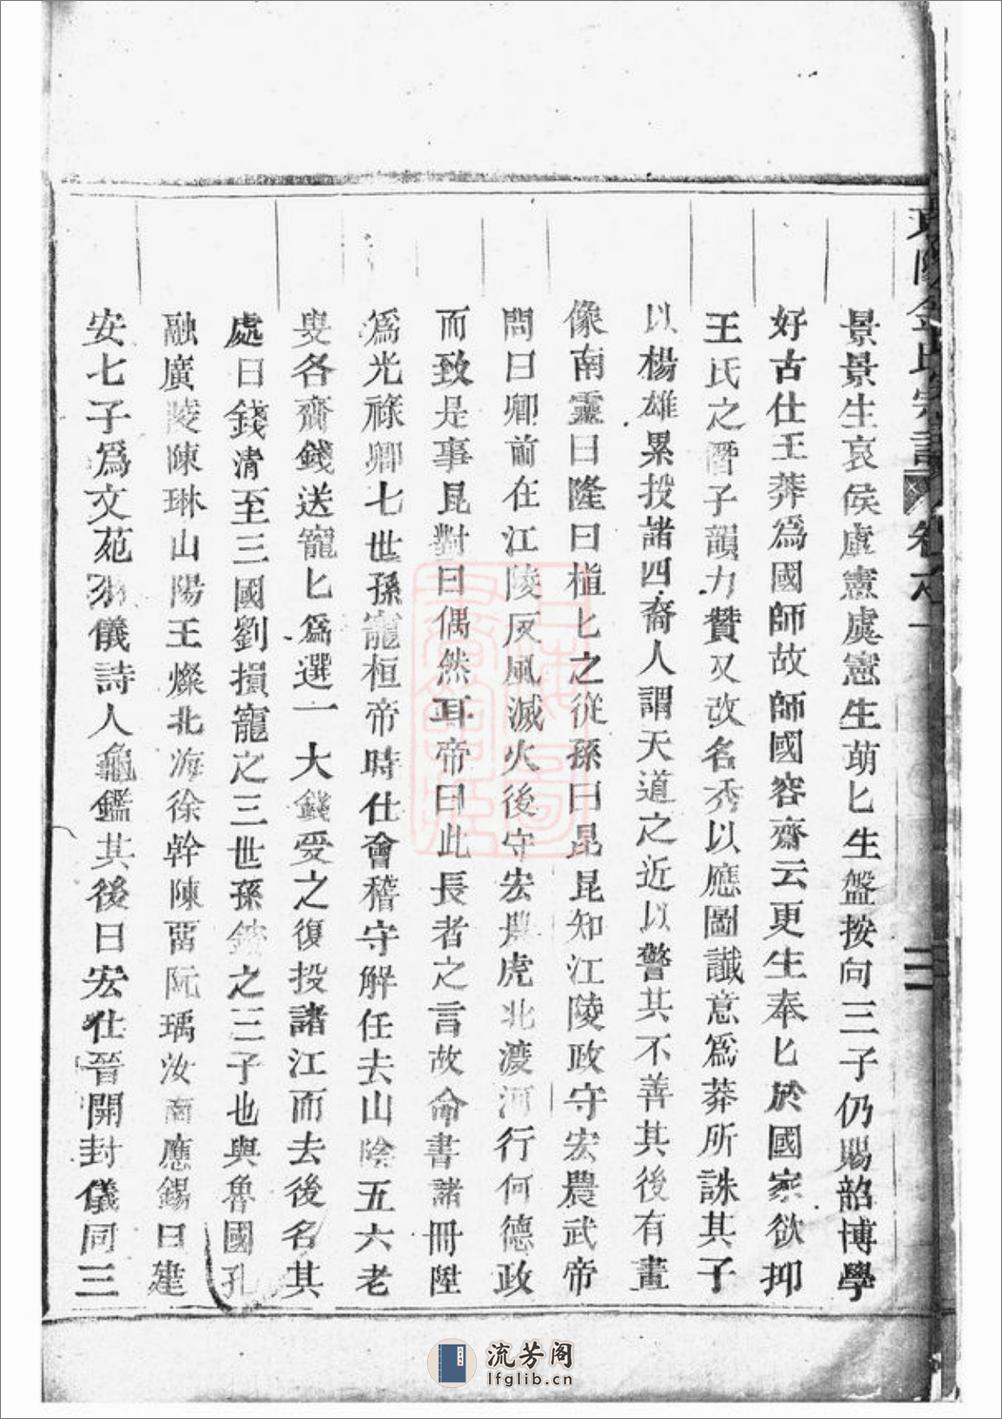 景景生哀侯虛憲虞憲生萌匕生盤按向三子仍賜韶博學
好古仕王莽為國師故師國容齋云更生奉匕於國家欲抑
王氏之僭子韻力贊又改名秀以應圖讖意為莽所誅其子
以楊雄累投諸四裔人謂天道之近以警其不善其後有畫
像南靈曰隆曰植匕之從孫曰昆昆知江陵政守宏農武帝
問曰卿前在江陵反風滅火後守宏農虎北渡河行何德政
而致是事昆對曰偶然耳帝曰此長者之言故命書諸冊陞
為光祿卿七世孫寵桓帝時仕會稽守解任去山陰五六老
叟各齋錢送寵匕為選一大錢受之復投諸江而去後名其
處曰錢清至三國劉損寵之三世孫鎮之三子也與魯國孔
融廣陵陳琳山陽王燦北海徐幹陳畱阮瑀汝南應錫曰建
安七子為文苑羽儀詩人龜鑑其後曰宏仕晉開封儀同三
流芳阁
lfglib.cn